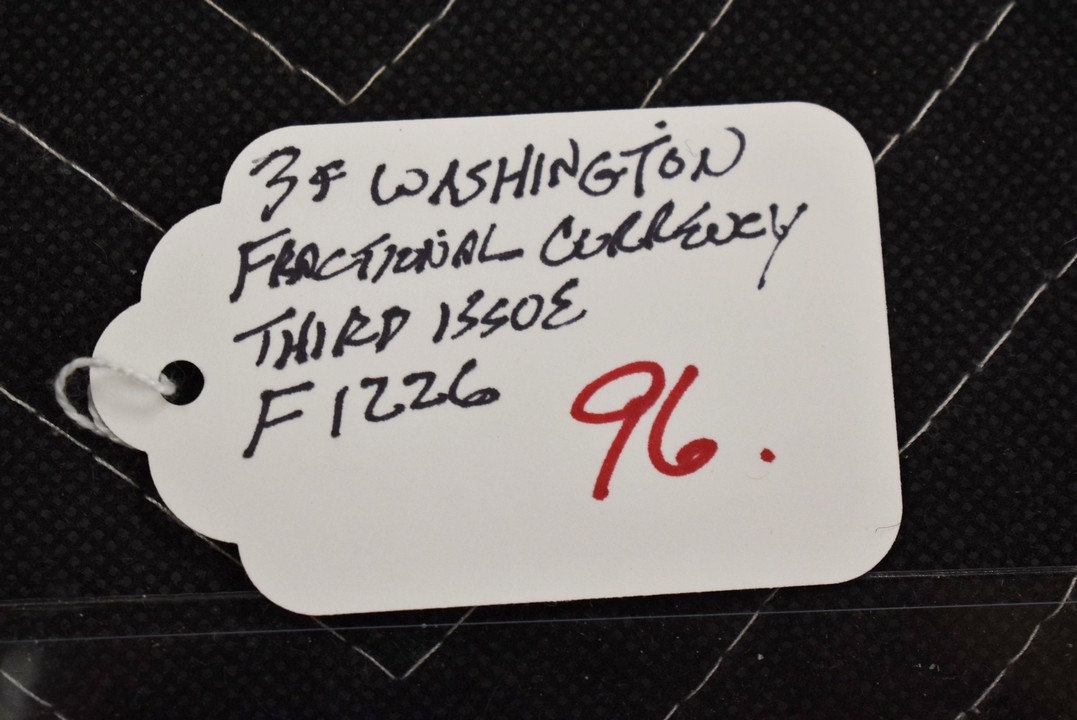 3¢ WASHINGTON
FRACTIONAL CURRENCY
THIRD ISSUE
F 1226
96.